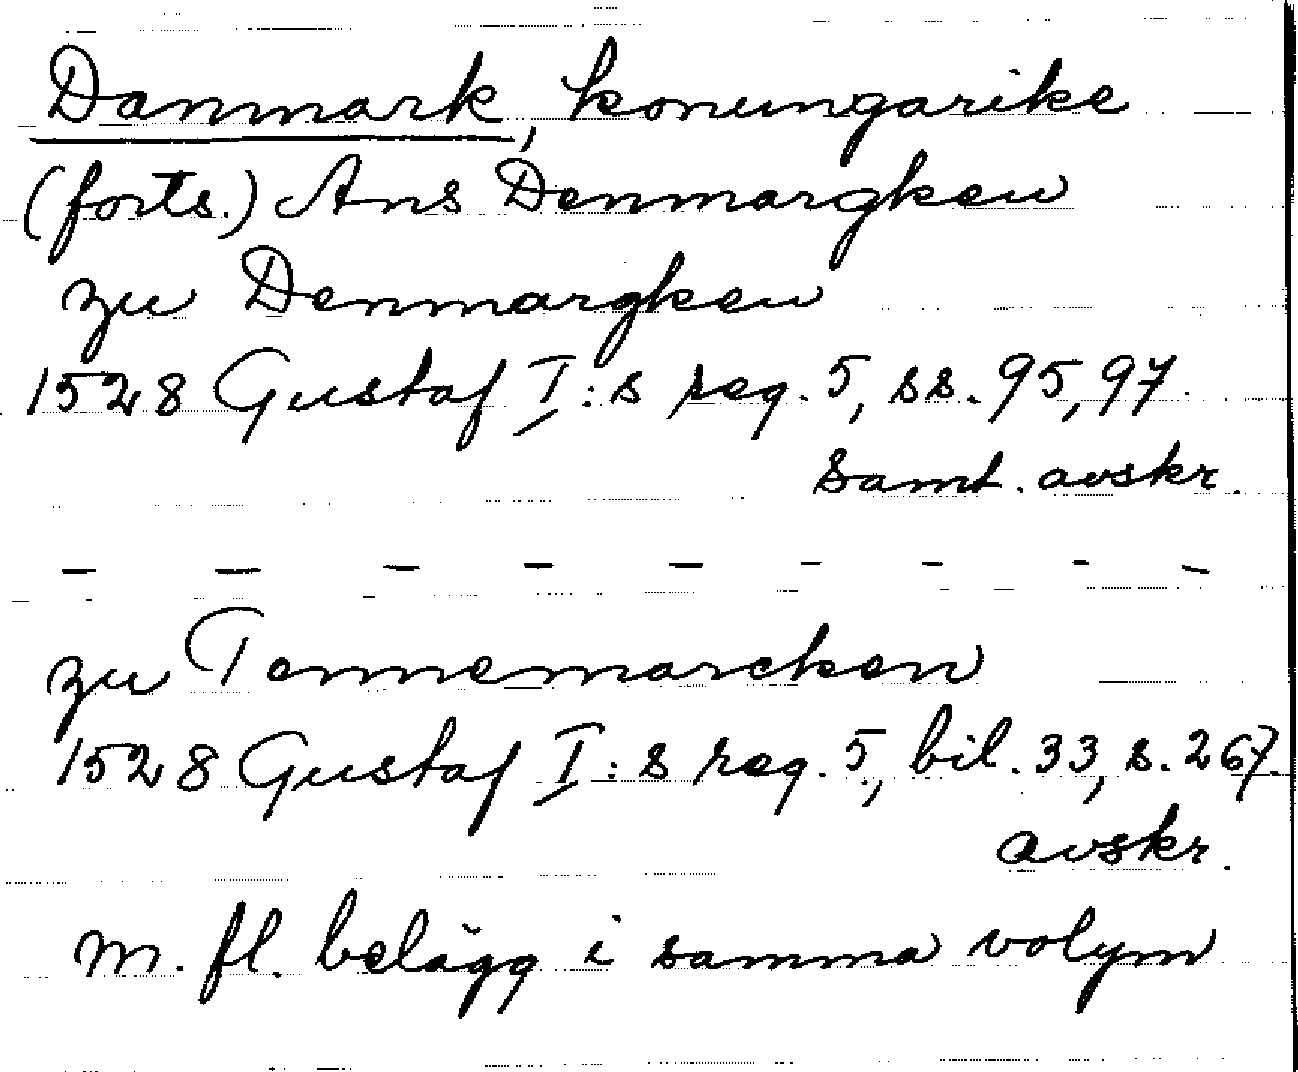 Danmark, konungarike
(forts.) Ans Denmargken
zu Denmargken
1528 Gustaf I:s reg. 5, ss. 95, 97.
samt. avskr.
— — — — — — — — —
zu Tennemarcken
1528 Gustaf I:s reg. 5, bil. 33, s. 267.
avskr.
m. fl. belägg i samma volym